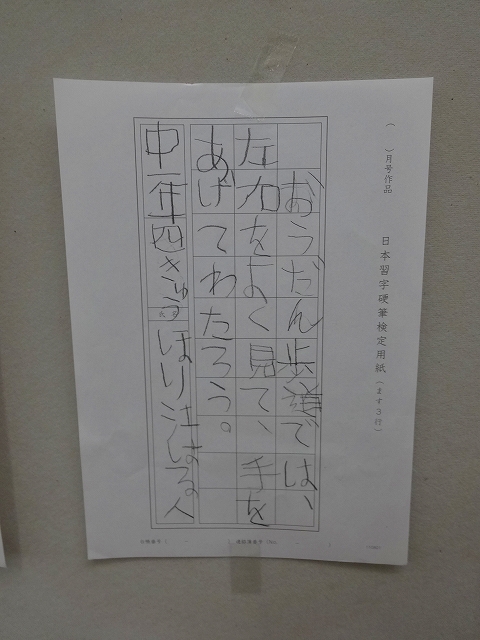 （　　）月号作品
日本習字硬筆検定用紙（ます3行）
おうだん歩道では、
左右をよく見て、手を
あげてわたろう。
中一年四きゅう
氏名
ほり江はる人